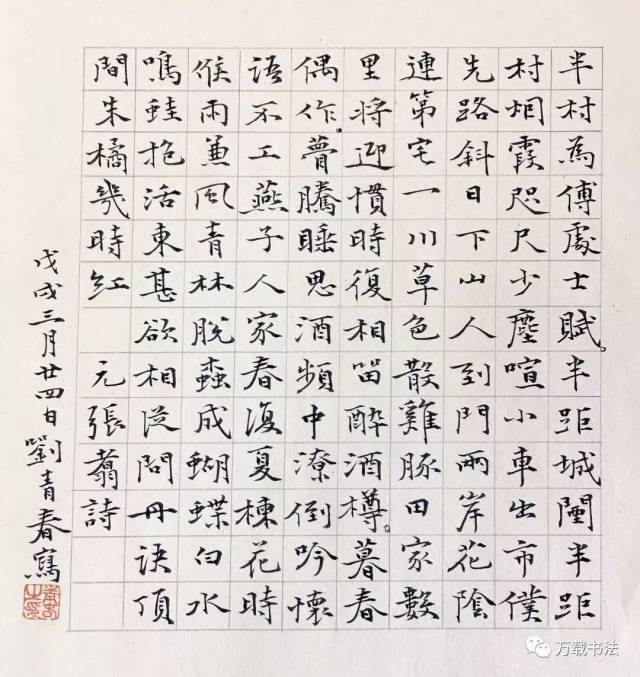 半村為傅處士賦。半距城闉半距
村烟霞咫尺少塵喧小車出市僕
先路斜日下山人到門兩岸花陰
連第宅一川草色散雞豚田家數
里將迎慣時復相畱酔酒樽。暮春
偶作。瞢騰睡思酒頻中潦倒吟懷
語不工燕子人家春復夏楝花時
候雨兼風青林脫成蝴蝶白水
鳴蛙抱活東甚欲相從問丹訣頂
間朱橘幾時紅 元張翥詩
戊戌三月廿四日劉青春寫
万载书法